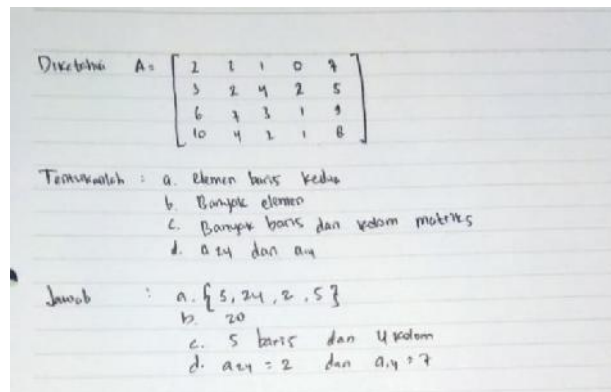 Diketahui A = [ 2 2 1 0 7
3 2 4 2 5
6 7 3 1 9
10 4 2 1 8 ]
Tentukanlah : a. elemen baris kedua
b. Banyak elemen
c. Banyak baris dan kolom matriks
d. a24 dan a14
Jawab : a. { 3, 24, 2, 5 }
b. 20
c. 5 baris dan 4 kolom
d. a24 = 2 dan a14 = 7